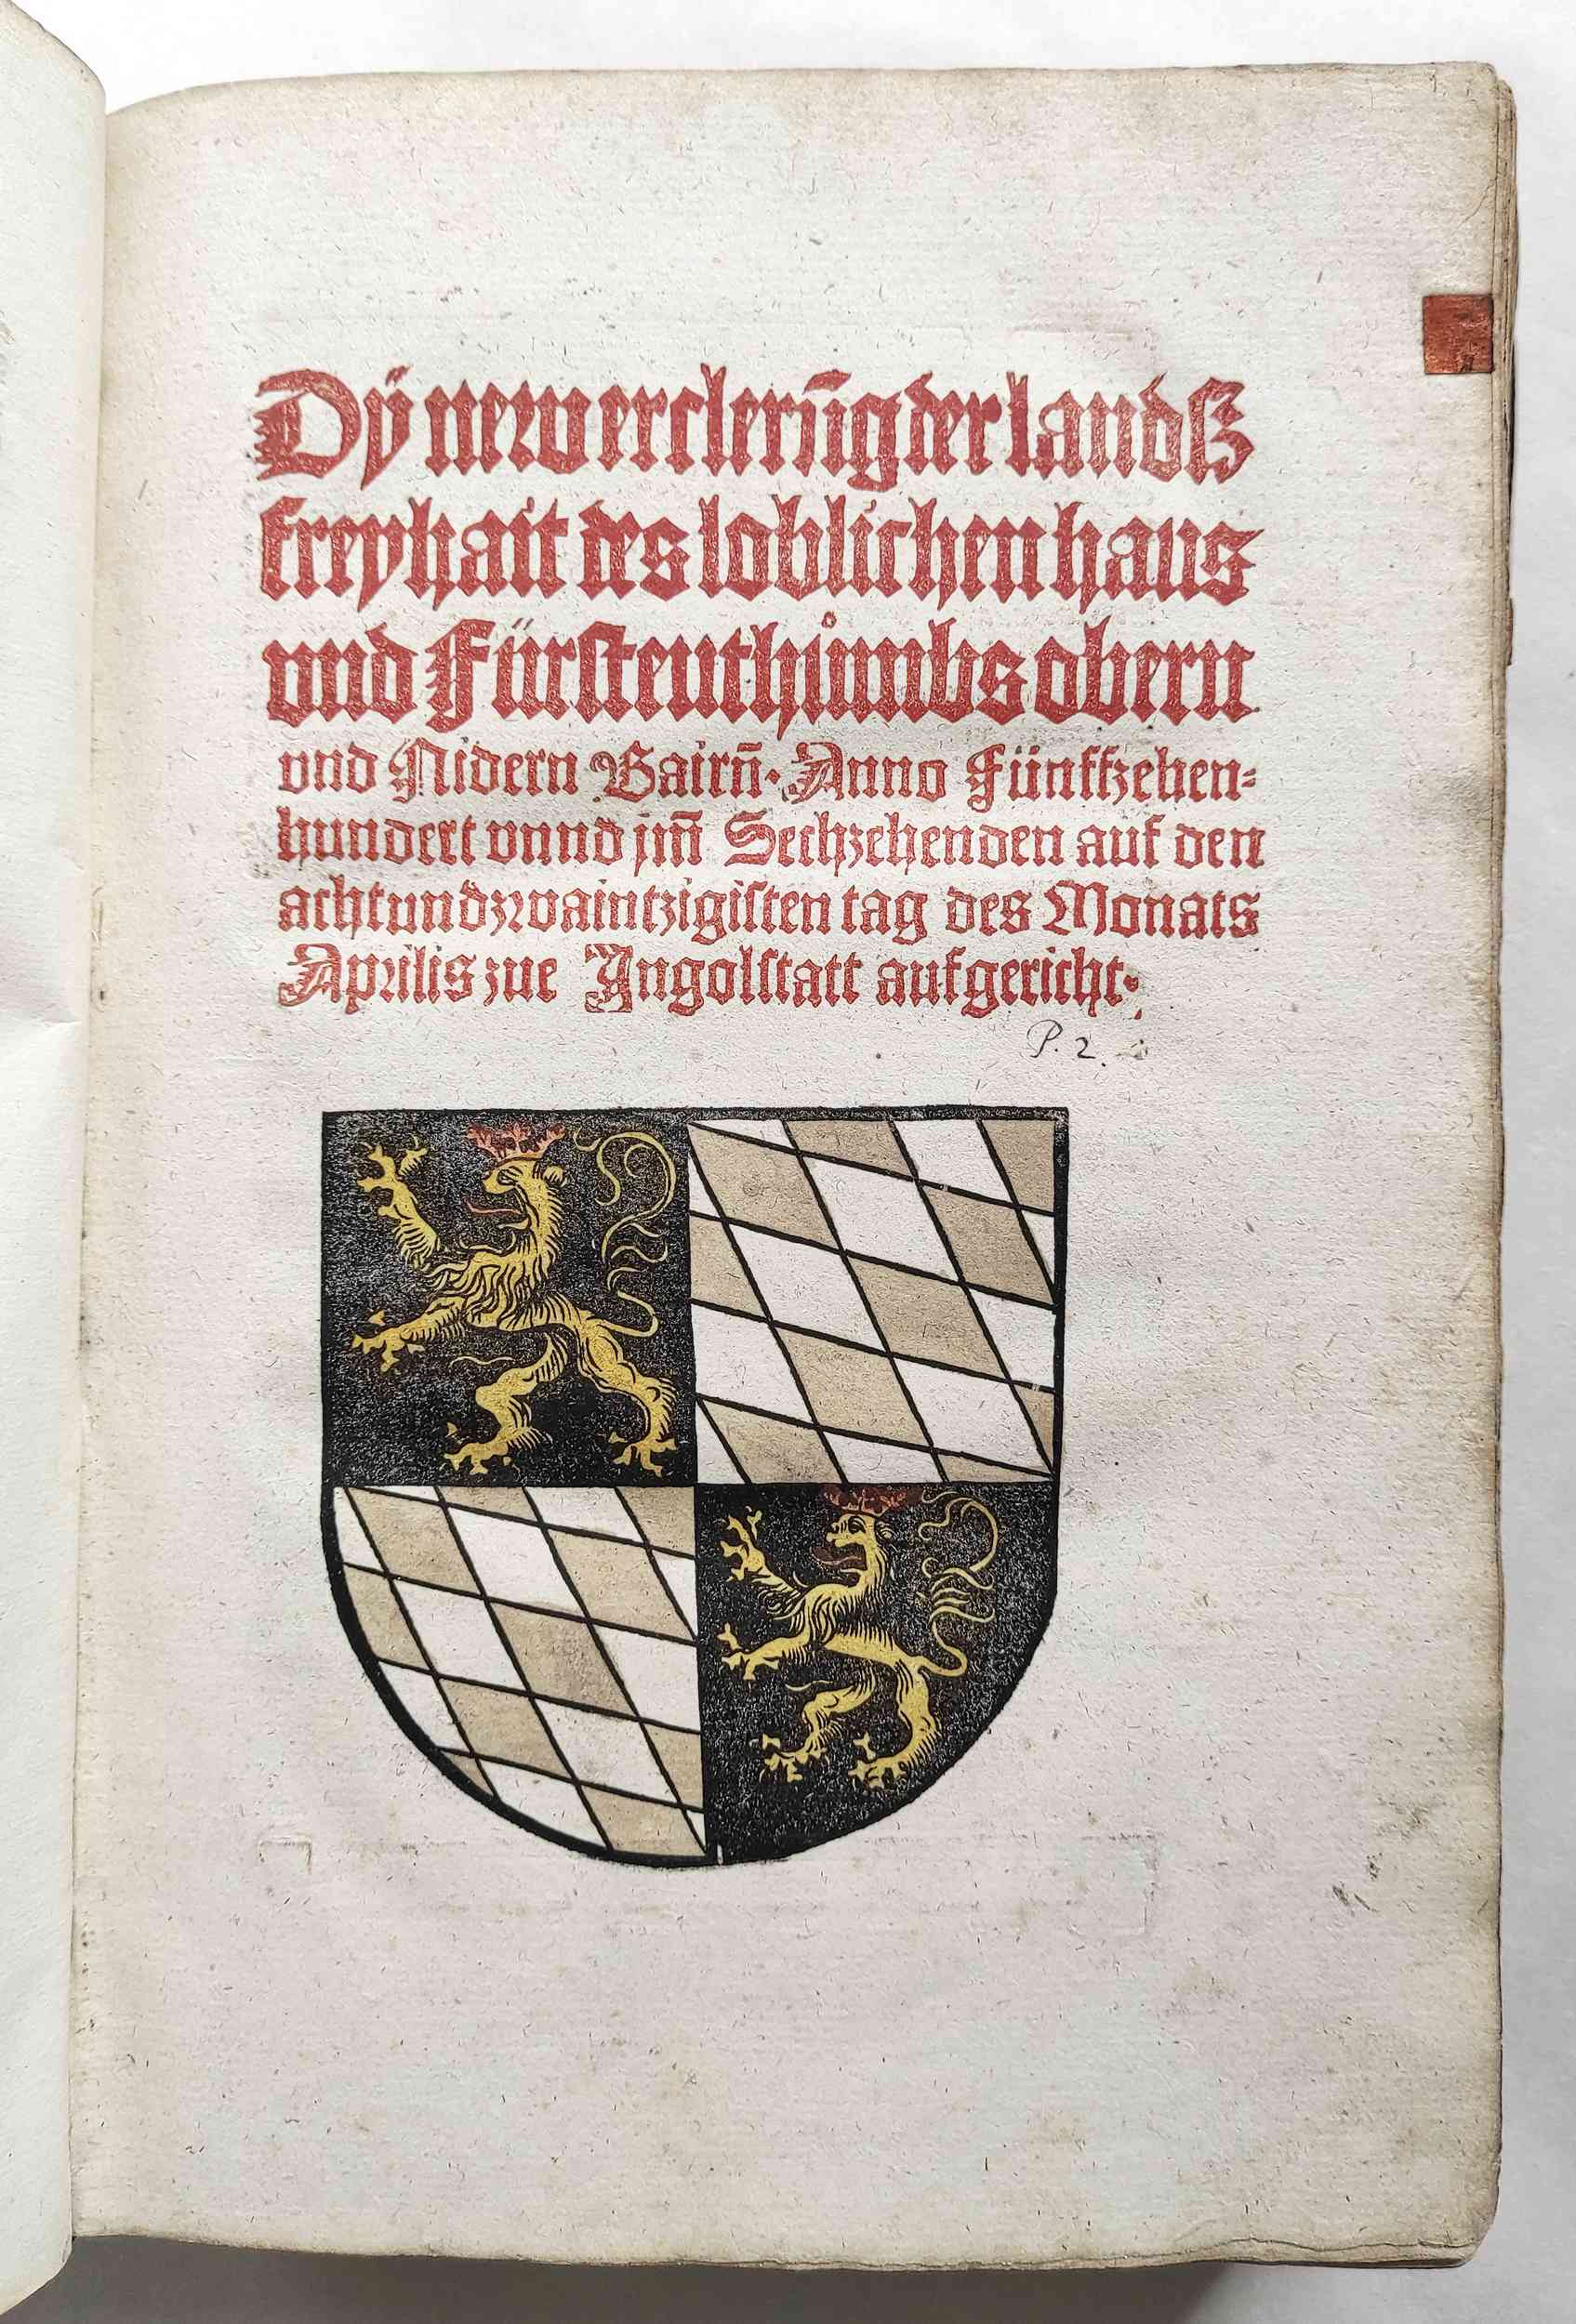 Dÿ new erclerũg der landß
freyhait des loblichen haus
vnd Fürstenthůmbs obern
vnd Nidern Bairñ. Anno Fünffzehen-
hundert vnnd jm̃ Sechzehenden auf den
achtundzwaintzigisten tag des Monats
Aprilis zue Jngolstatt aufgericht.
P. 2.